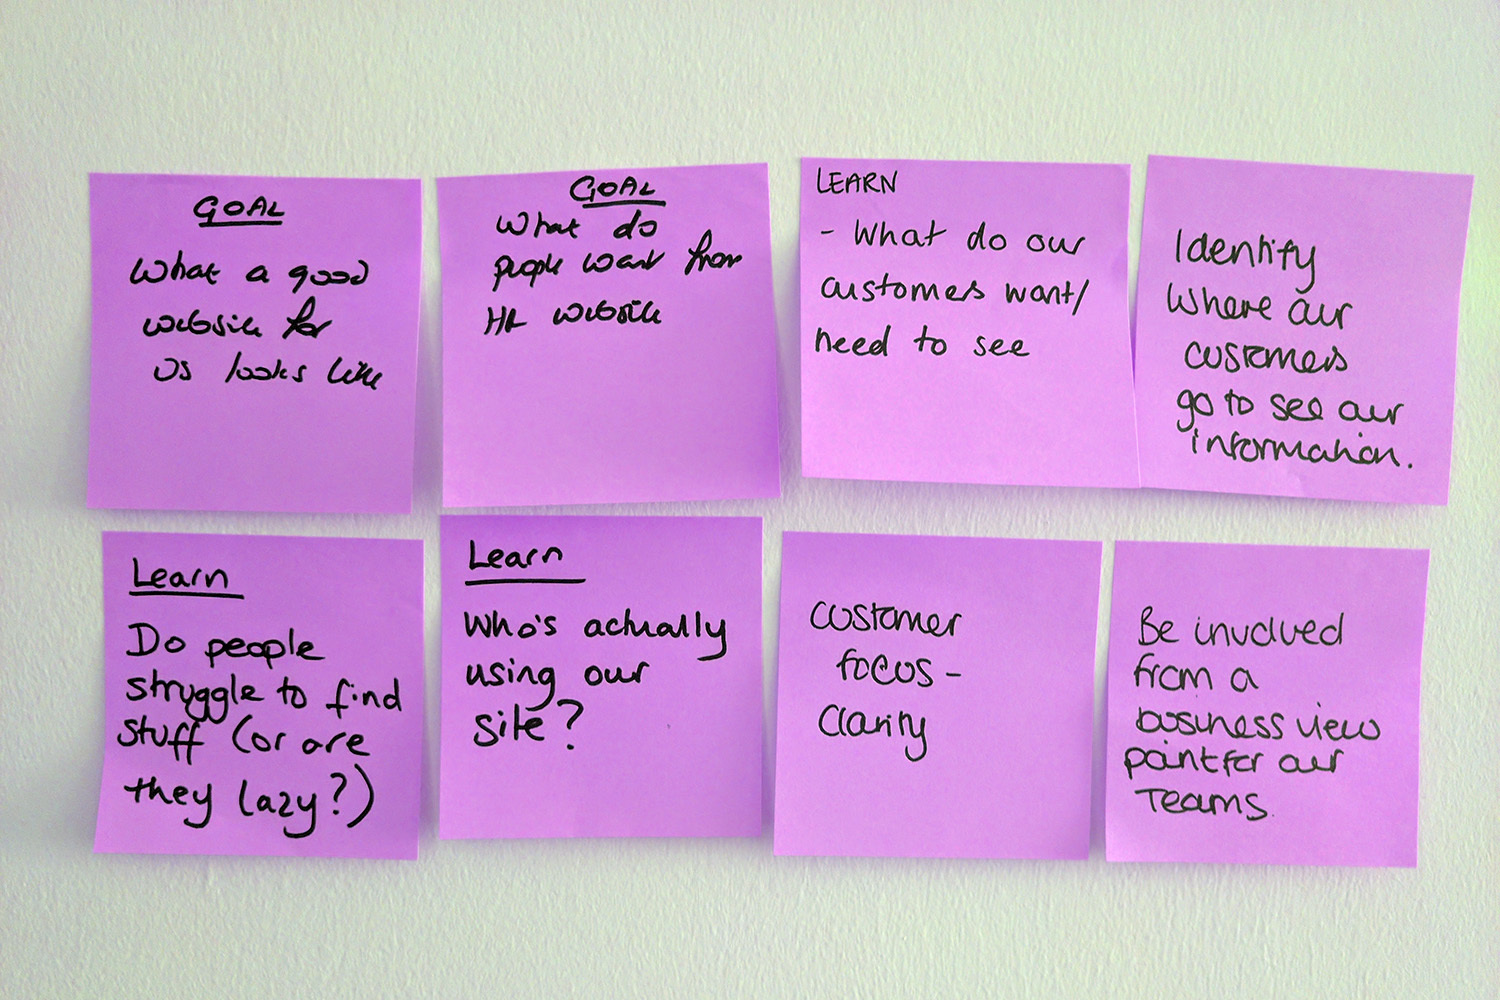 GOAL
What a good
website for
us looks like
GOAL
What do
people want from
HR website
LEARN
- What do our
customers want/
need to see
Identify
where our
customers
go to see our
information.
Learn
Do people
struggle to find
stuff (or are
they lazy?)
Learn
Who's actually
using our
site?
customer
focus -
Clarity
Be involved
from a
business view
point for our
Teams.